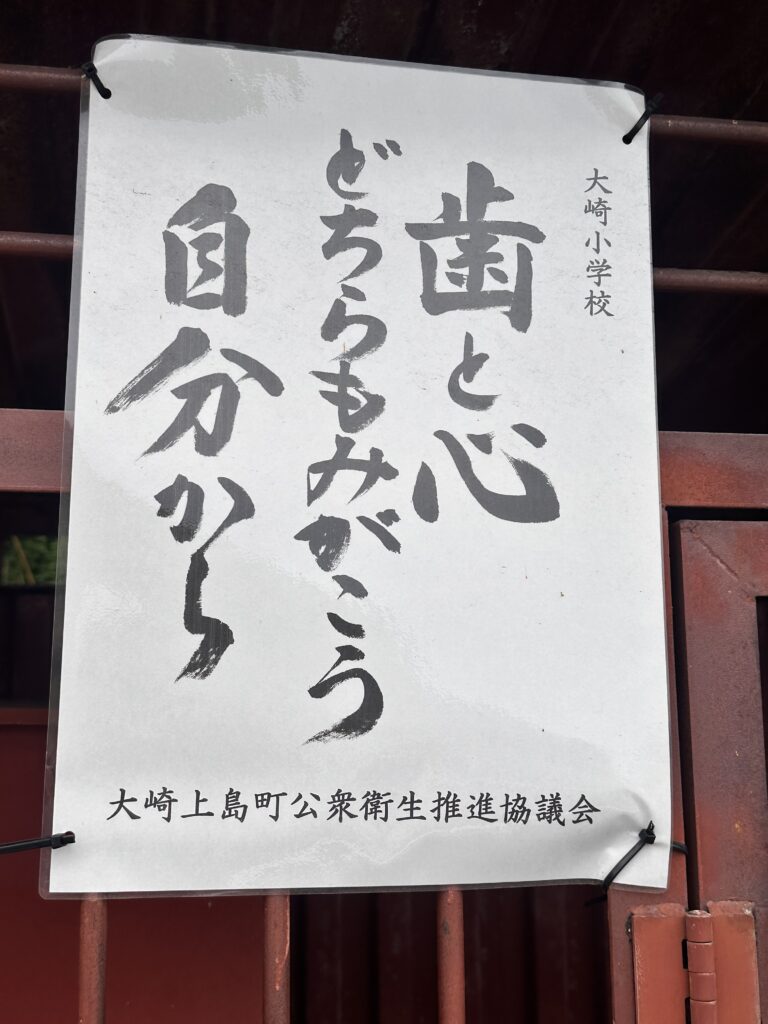 大崎小学校
歯と心
どちらもみがこう
自分から
大崎上島町公衆衛生推進協議会